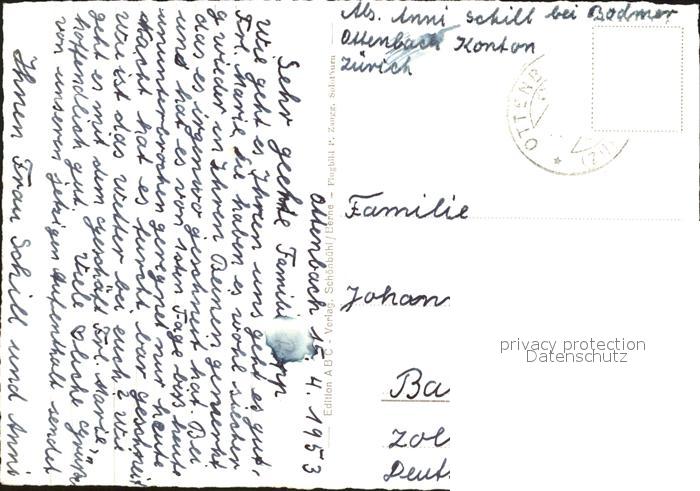 Abs. Anni Schill bei Bodmer
Ottenbach Konton
Zürich
OTTENB
(ZH)
Familie
Johan
Ba
Zol
Deut
privacy protection
Datenschutz
Edition ABC - Verlag, Schönbühl/Berne. - Flugbild P. Zaugg, Solothurn
Ottenbach 15. 4. 1953
Sehr geehrte Familie
Wie geht es Ihnen uns geht es gut.
Frl. Marie, Sie haben es wohl sicher
wieder in Ihren Beinen gemerkt
das es irgenwo geschneit hat. Bei
uns hat es von 1sten Tage biss heute
ununterbrochen geregnet nur heute
Nacht hat es furcht bar geschneit
Wie ist das Wetter bei euch? Wie
geht es mit dem geschäft Frl. Marie,
hoffendlich gut. Viele Grüße
von unseren jetzigen Aufenthalt sendet
Ihnen Frau Schill und Anni